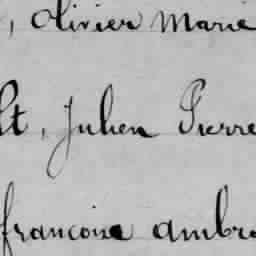 , Olivier Marie
lt, Julien Pierre
francoise ambro